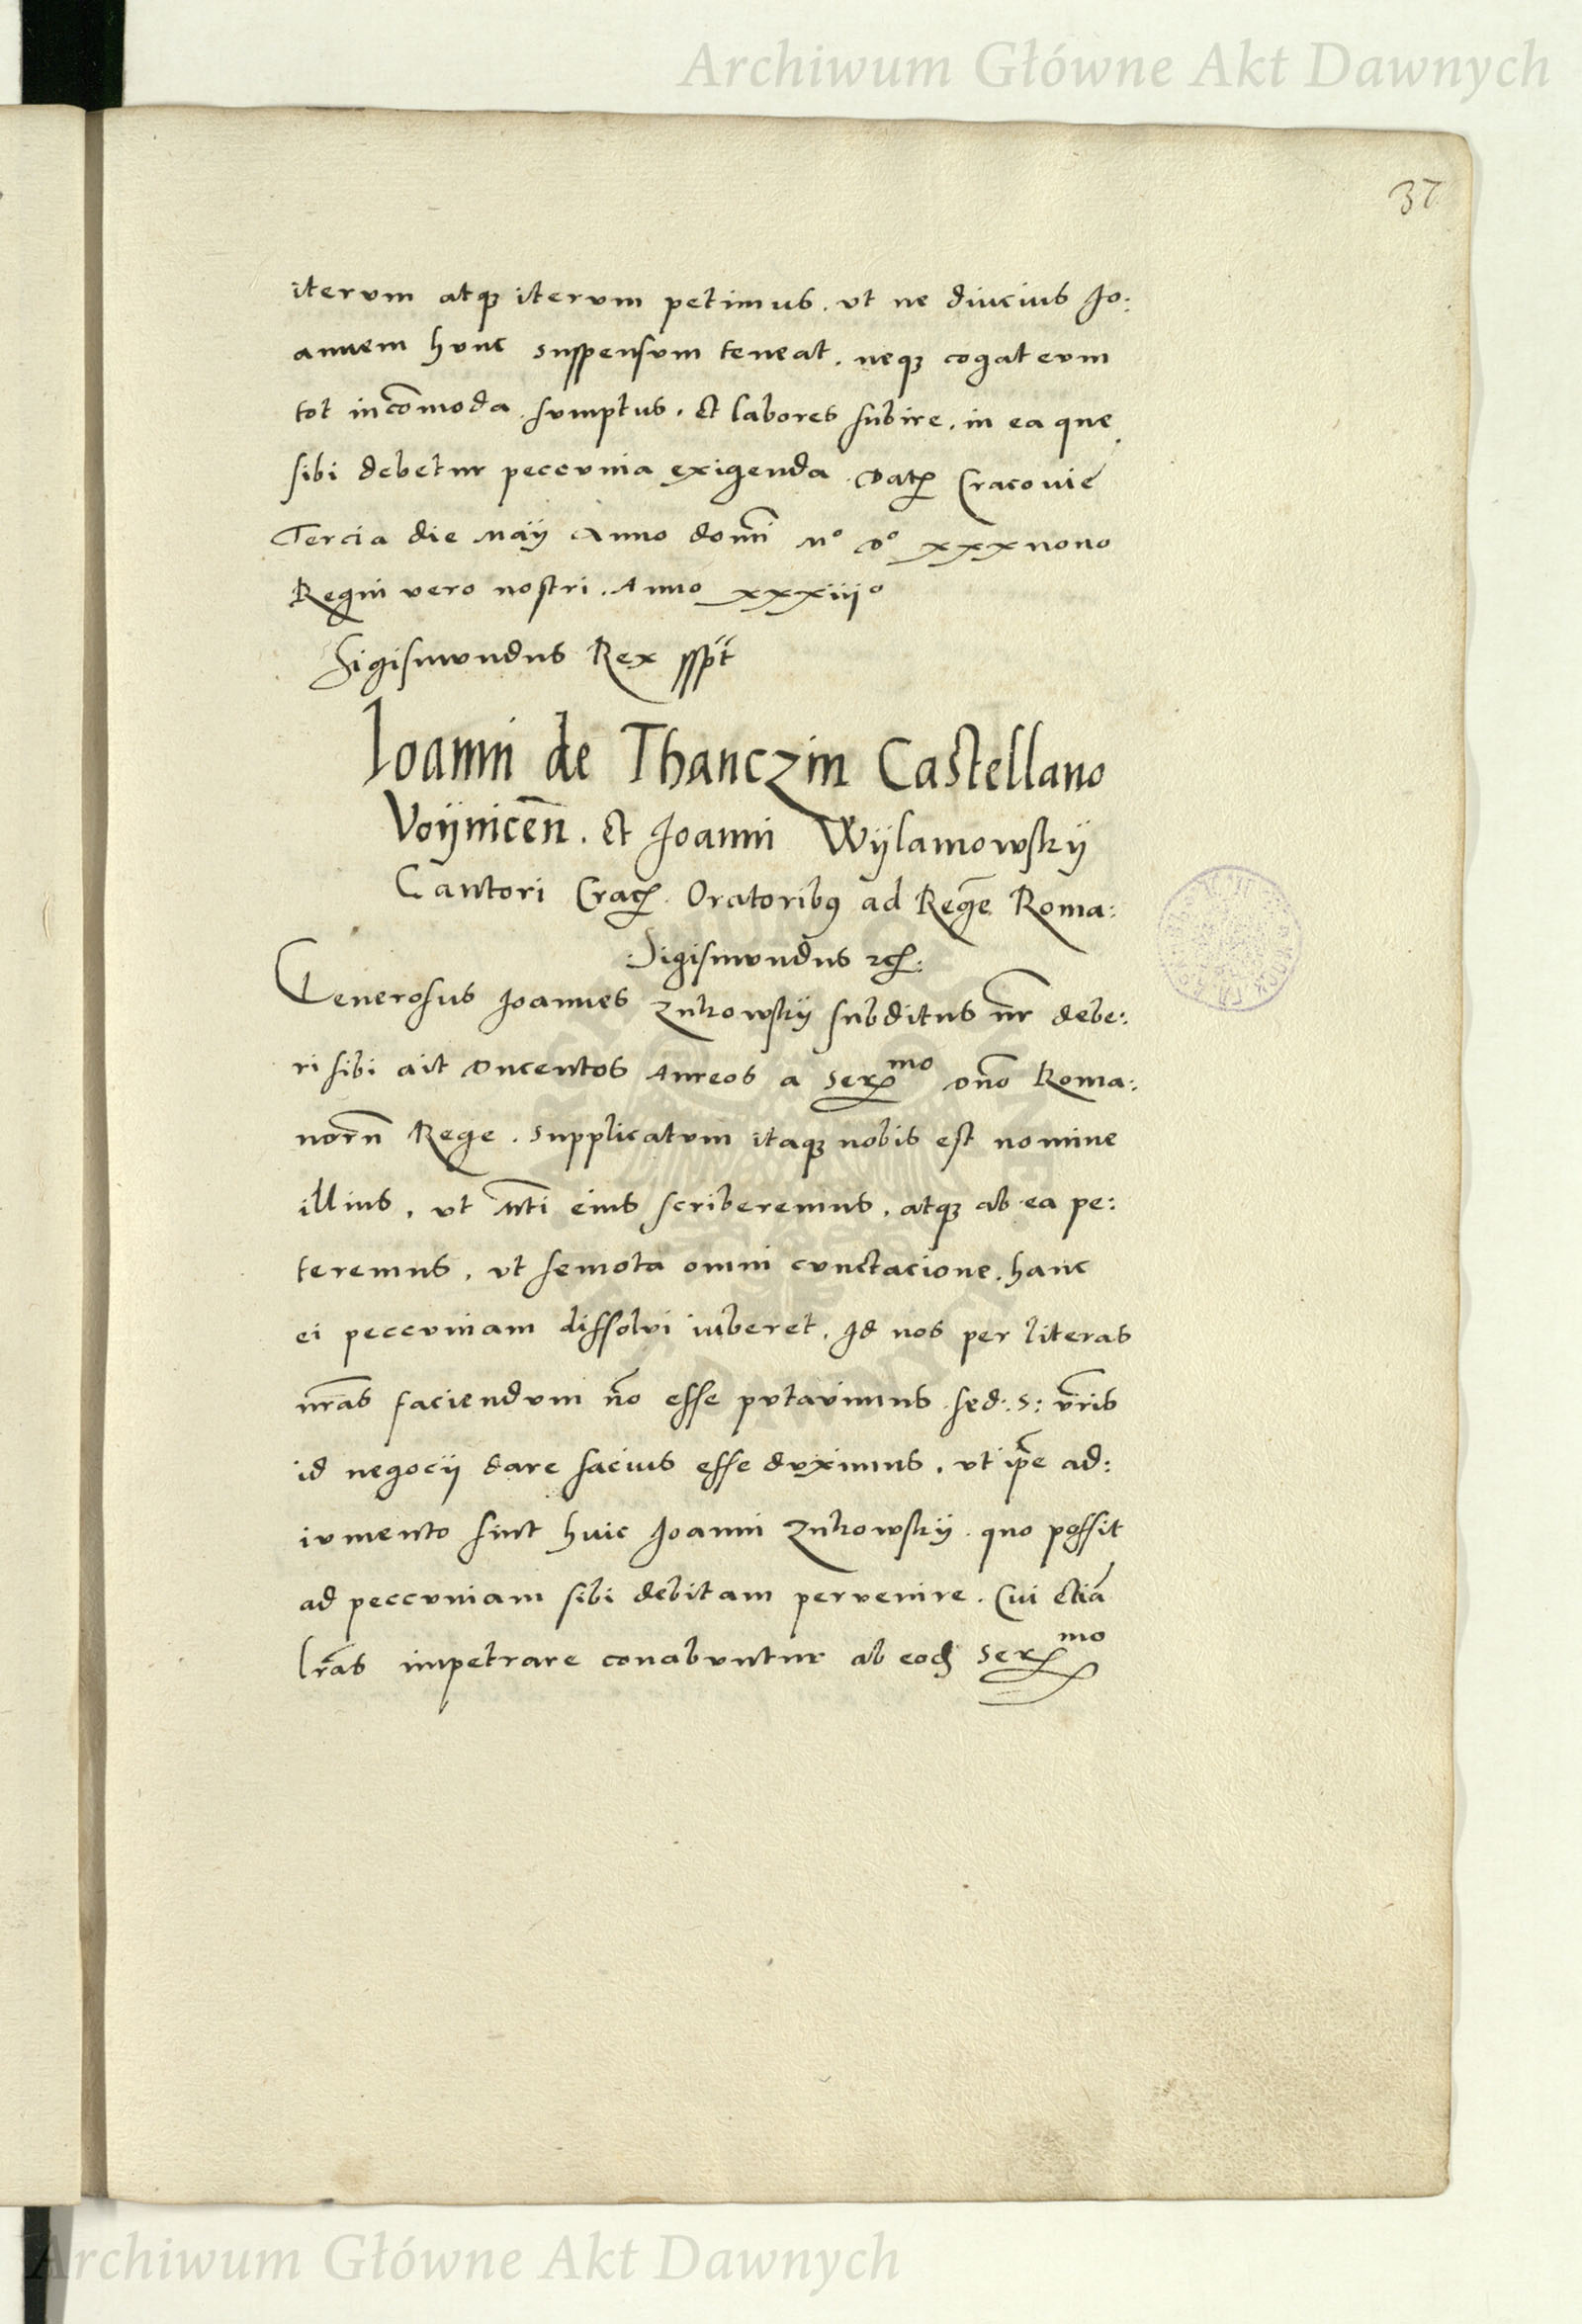 Archiwum Główne Akt Dawnych
37
iterum atqꝫ iterum petimus. ut ne diucius Jo:
annem hunc suspensum teneat. neqꝫ cogat eum
tot incōmoda sumptus. et labores subire. in ea que
sibi debetur peccunia exigenda. Datꝫ Cracovie
Tercia die Maij Anno domī Mº Dº xxxnono
Regni vero nostri. Anno xxxiijº
Sigismundus Rex sspt
Ioanni de Thanczin Castellano
Voijnicēn. et Joanni Wijlamowskij
Cantori Cracꝫ. Oratoribꝰ ad Regē Roma:
Sigismundus ꝛcꝫ:
Generosus Joannes Zukowskij subditus nr̄ debe:
ri sibi ait Ducentos Aureos a Serᵐᵒ Dnō Roma:
norū Rege. Supplicatum itaqꝫ nobis est nomine
illius. ut Mti eius scriberemus. atqꝫ ab ea pe:
teremus. ut semota omni cunctacione. hanc
ei peccuniam dissolvi iuberet. Id nos per literas
nrās faciendum nō esse putavimus. sed. S: vrīs
id negocij dare sacius esse duximus. ut ipē ad:
iumento sint huic Joanni Zukowskij. quo possit
ad peccuniam sibi debitam pervenire. Cui etiā
lrās impetrare conabuntur ab eodꝫ Serᵐᵒ
Archiwum Główne Akt Dawnych